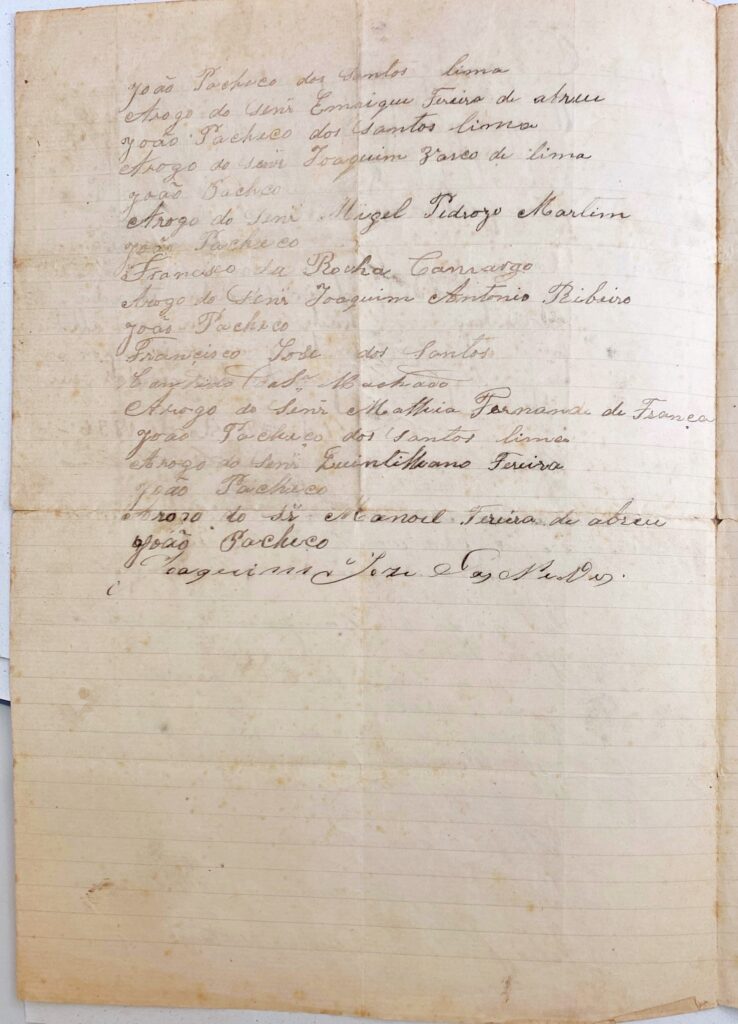 João Pacheco dos Santos lima
Arogo do Senr Emrique Fereira de abreu
João Pacheco dos Santos lima
Arogo do Senr Joaquim Varco de lima
João Pacheco
Arogo do Senr Migel Pedrozo Martim
João Pacheco
Francisco da Rocha Camargo
Arogo do Senr Joaquim Antonio Ribeiro
João Pacheco
Francisco Jose dos Santos
Machado
Arogo do Senr Mathia Fernande de França
João Pacheco dos Santos lima
Arogo do Senr Fereira
João Pacheco
Arogo do Sr Manoel Fereira de abreu
João Pacheco
Joaquim Joze das Neves.